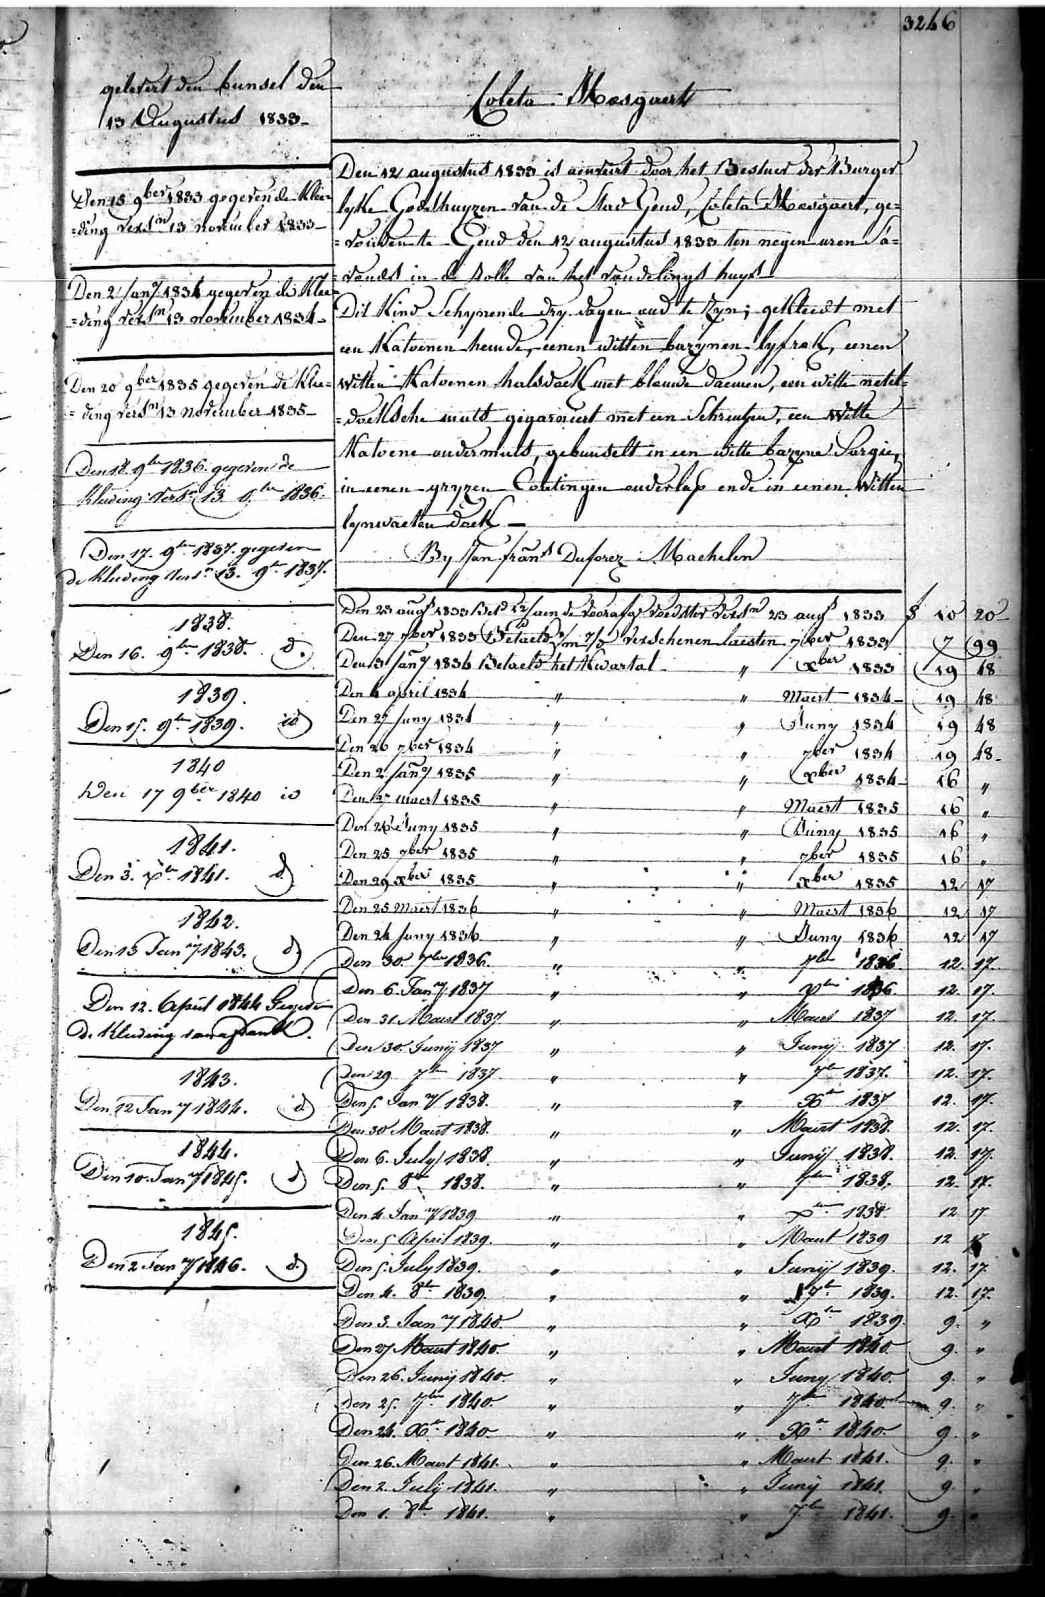 3246
gelevert den bunsel den
13 Augustus 1833
Coleta Mosgaert
Den 15 9ber 1833 gegeven de Klee=
=ding versn 13 november 1833
Den 2 Jany 1834 gegeven de Klee=
=ding versn 13 november 1834
Den 20 9ber 1835 gegeven de Klee=
=ding versn 13 november 1835
Den 18. 9br 1836. gegeven de
Kleeding versn 13 9br 1836.
Den 17. 9br 1837. gegeven
de Kleeding versn 13. 9br 1837.
1838.
Den 16. 9br 1838. id.
1839.
Den 15. 9br 1839. id
1840
Den 17 9ber 1840 id
1841.
Den 3. xbr 1841. id
1842.
Den 13 Jany 1843. id
Den 12. April 1844 Gegeven
de Kleeding
1843.
Den 12 Jany 1844. id
1844.
Den 10. Jany 1845. id
1845.
Den 2 Jany 1846. id
Den 12 augustus 1833 is aenveirt door het Bestuer der Burger
lyke Godshuyzen van de Stad Gend, Coleta Mosgaert, ge=
=vonden te Gend den 12 augustus 1833 ten negen uren S'a=
=vonds in de Rolle van het vondelings huys
Dit Kind Schynende dry dagen oud te zyn; gekleedt met
een Katoenen hemde, eenen witten bazynen lyfrok, eenen
witten Katoenen halsdoek met blauwe blommen, een witte netel=
=doeksche muts gegarneert met een Schreutjen, een Witte
Katoene ondermuts, gebunselt in een witte bazyne Sargie,
in eenen gryzen Coutingen onderlap ende in eenen Witten
lynwaeten doek
By Jan frans Duforez Machelen
Den 23 augs 1833 versn 23 augs 1833 10 20
Den 27 7ber 1833 Betaelt verschenen laesten 7ber 1833 7 99
Den 3 Jany 1834 Betaelt het Kwartal " xber 1833 19 48
Den 4 april 1834 " " Maert 1834 19 48
Den 27 Juny 1834 " " Juny 1834 19 48
Den 26 7ber 1834 " " 7ber 1834 19 48
Den 2 Jany 1835 " " xber 1834 16 "
Den 27 maert 1835 " " Maert 1835 16 "
Den 26 Juny 1835 " " Juny 1835 16 "
Den 25 7ber 1835 " " 7ber 1835 16 "
Den 29 xber 1835 " " xber 1835 12 17
Den 25 Maert 1836 " " Maert 1836 12 17
Den 24 Juny 1836 " " Juny 1836 12 17
Den 30. 7ber 1836. " " 7ber 1836 12. 17.
Den 6. Jany 1837 " " xber 1836 12. 17.
Den 31 Maert 1837 " " Maert 1837 12. 17.
Den 30. Junij 1837 " " Junij 1837 12. 17.
Den 29 7br 1837. " " 7br 1837. 12. 17.
Den 5. Jany 1838. " " Xbr 1837 12. 17.
Den 30 Maert 1838. " " Maert 1838. 12. 17.
Den 6. July 1838. " " Junij 1838. 12. 17.
Den 5. 8br 1838. " " 7br 1838. 12. 17.
Den 4. Jany 1839 " " xber 1838. 12 17
Den 5. April 1839. " " Maert 1839 12 17
Den 5. July 1839. " " Junij 1839. 12. 17
Den 4. 8br 1839. " " 7br 1839. 12. 17.
Den 3. Jany 1840 " " Xbr 1839 9. "
Den 27 Maert 1840 " " Maert 1840. 9. "
Den 26. Junij 1840 " " Juny 1840. 9. "
Den 25. 7br 1840 " " 7br 1840 9. "
Den 24. Xbr 1840 " " Xbr 1840 9. "
Den 26. Maert 1841. " " Maert 1841. 9. "
Den 2. July 1841. " " Junij 1841. 9. "
Den 1. 8br 1841. " " 7br 1841. 9. "